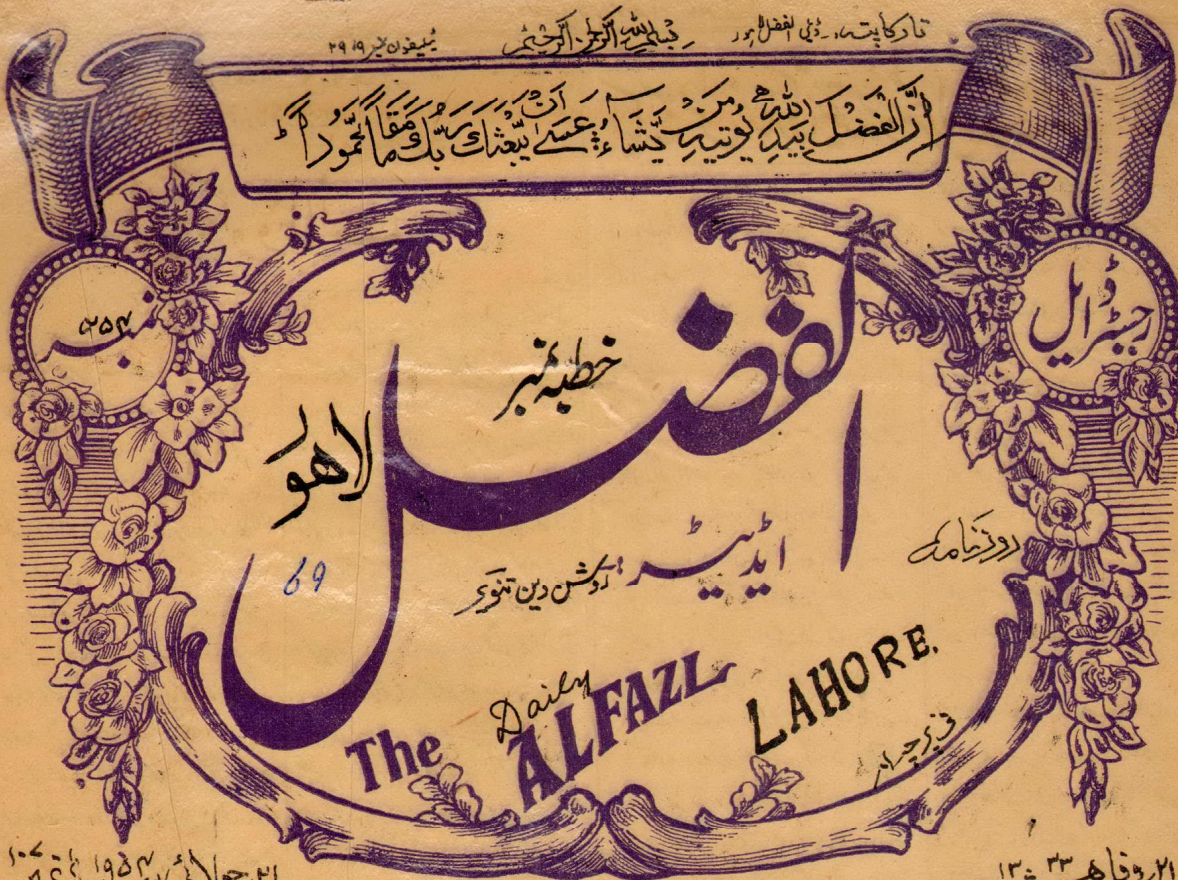 تار کا پتہ:۔ ڈیلی الفضل لاہور
بسم اللہ الرحمٰن الرحیم
ٹیلیفون نمبر ۲۹۶۹
اِنَّ الْفَضْلَ بِیَدِ اللّٰہِ یُوْتِیْہِ مَنْ یَّشَآءُ عَسٰی اَنْ یَّبْعَثَكَ رَبُّكَ مَقَامًا مَّحْمُوْدًا
رجسٹرڈ ایل
نمبر ۵۲۵۴
الفضل
خطبہ نمبر
لاھور
روزنامہ
ایڈیٹر: روشن دین تنویر
69
The Daily ALFAZL LAHORE.
فی پرچہ ۱ر
۲۱ وفا ھ ۱۳۳۳
۲۱ جولائی ۱۹۵۴ء